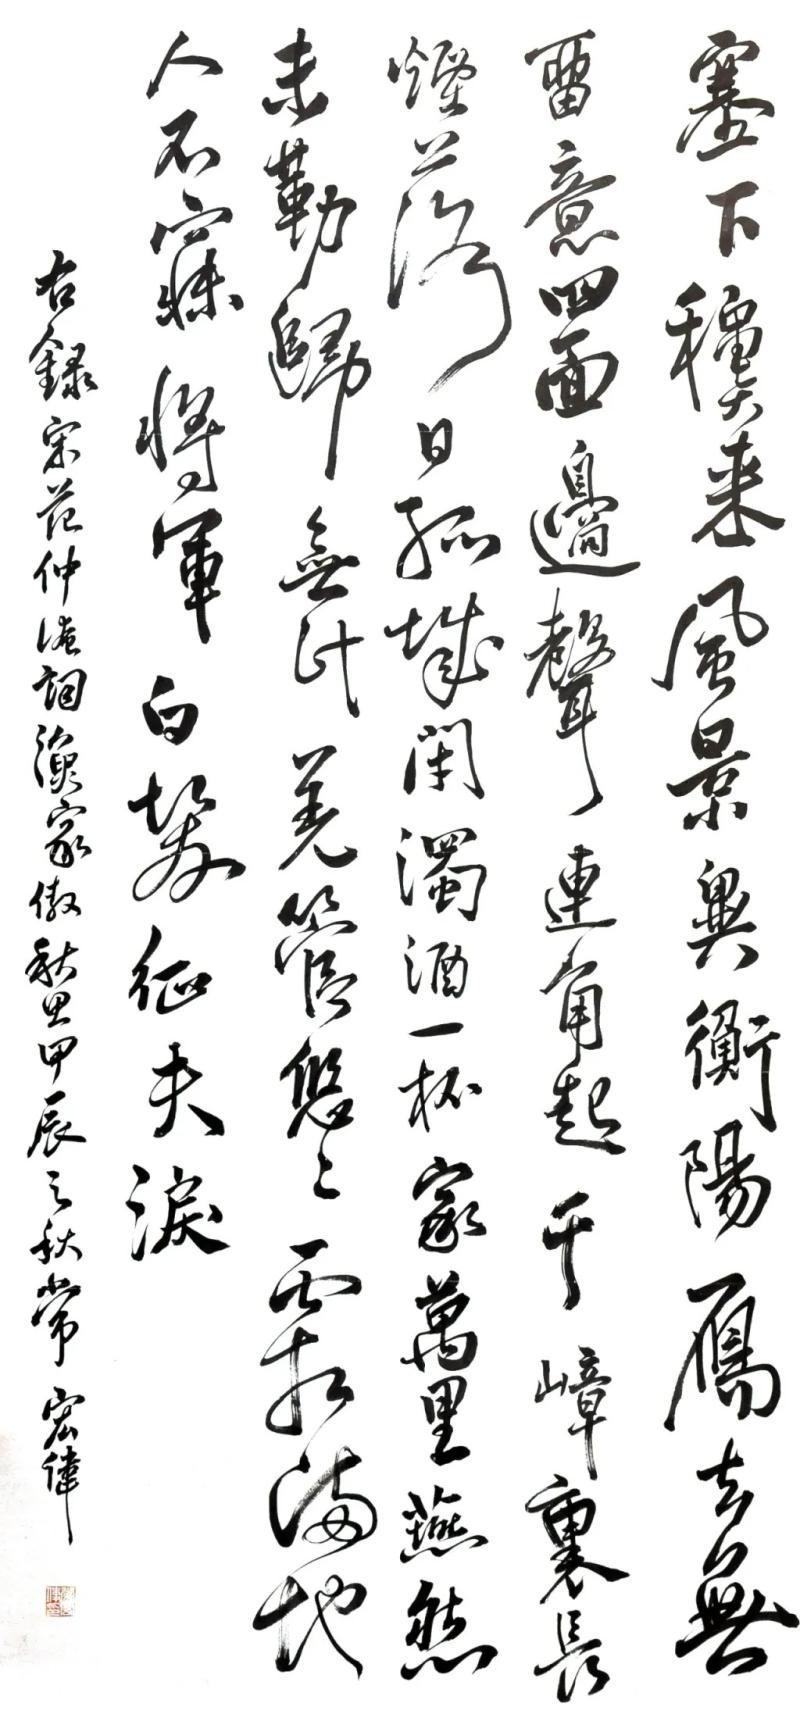 塞下穜来風景異衡陽雁去無
畱意四面邊聲連角起千嶂裏長
煙落日孤城閉濁酒一杯家萬里燕然
未勒歸無計羌管悠〻霜滿地
人不寐將軍白髮征夫淚
右録宋范仲淹詞漁家傲秋思甲辰之秋常宏偉